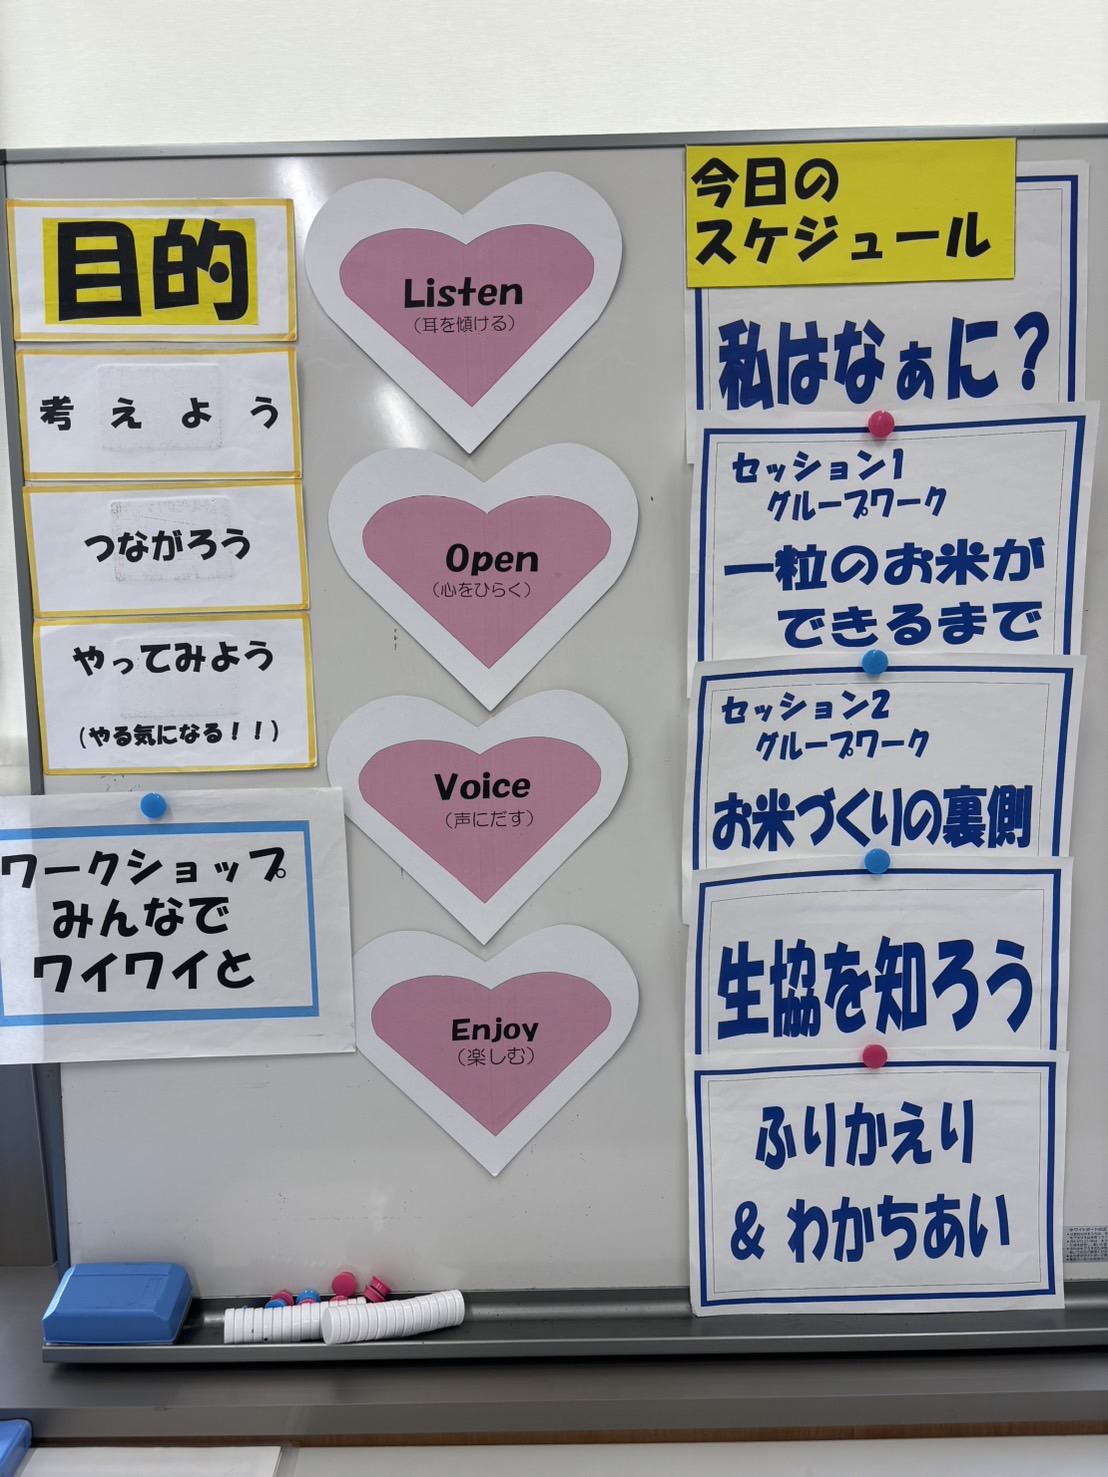 目的
考えよう
つながろう
やってみよう
(やる気になる！！)
ワークショップ
みんなで
ワイワイと
Listen
（耳を傾ける）
Open
（心をひらく）
Voice
（声にだす）
Enjoy
（楽しむ）
今日の
スケジュール
私はなぁに？
セッション1
グループワーク
一粒のお米が
できるまで
セッション2
グループワーク
お米づくりの裏側
生協を知ろう
ふりかえり
& わかちあい